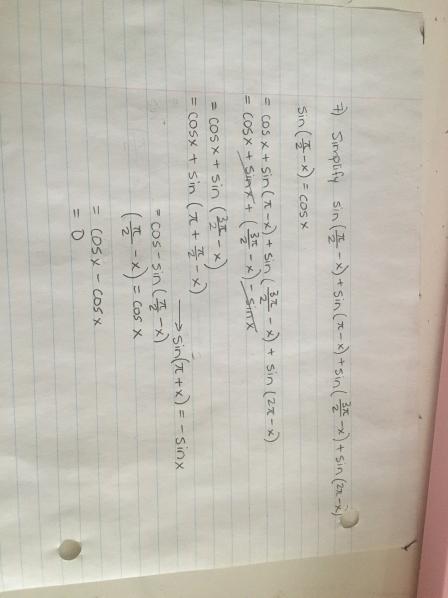 7) Simplify sin(π/2 - x) + sin(π - x) + sin(3π/2 - x) + sin(2π - x)
sin(π/2 - x) = cos x
= cos x + sin(π - x) + sin(3π/2 - x) + sin(2π - x)
= cos x + sin x + (3π/2 - x) - sin x
= cos x + sin(3π/2 - x)
= cos x + sin(π + π/2 - x)
→ sin(π + x) = - sin x
= cos - sin(π/2 - x)
(π/2 - x) = cos x
= cos x - cos x
= 0